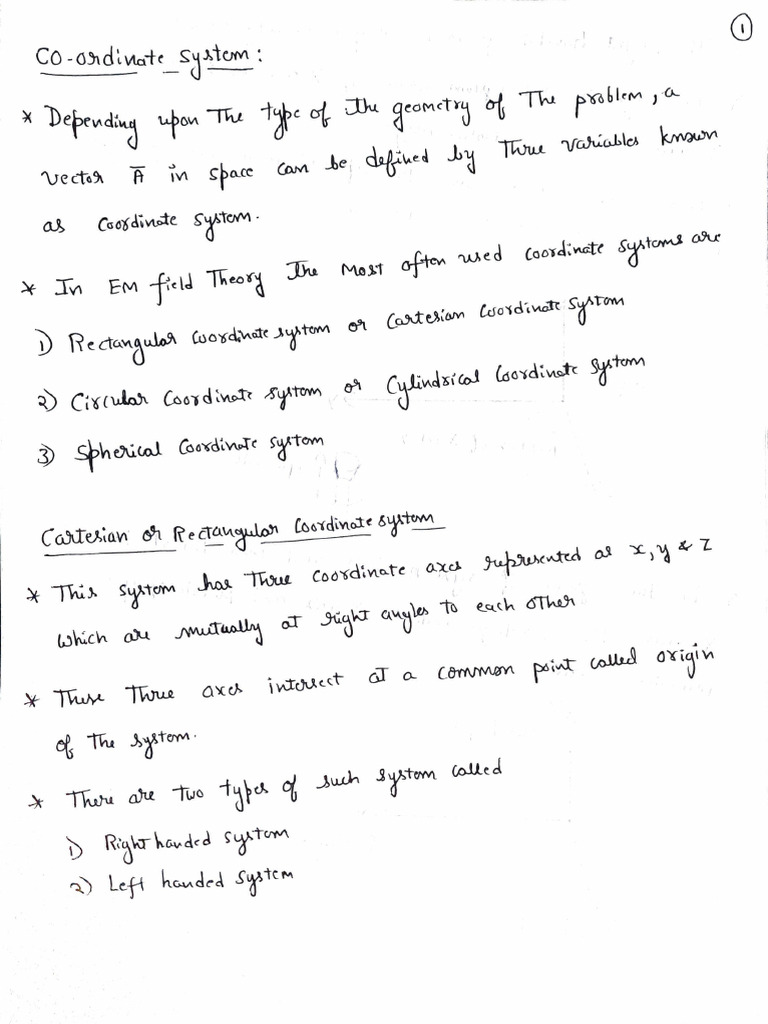 1
CO-ordinate system:
* Depending upon The type of the geometry of The problem, a
vector A̅ in space can be defined by Three variables known
as Coordinate system.
* In EM field Theory The Most often used coordinate systems are
1) Rectangular coordinate system or Cartesian Coordinate system
2) Circular Coordinate system or Cylindrical Coordinate system
3) Spherical Coordinate system
Cartesian or Rectangular Coordinate system
* This system has Three coordinate axes represented as x, y & z
which are mutually at right angles to each other
* These Three axes intersect at a common point called origin
of The system.
* There are two types of such system called
1) Right handed system
2) Left handed system